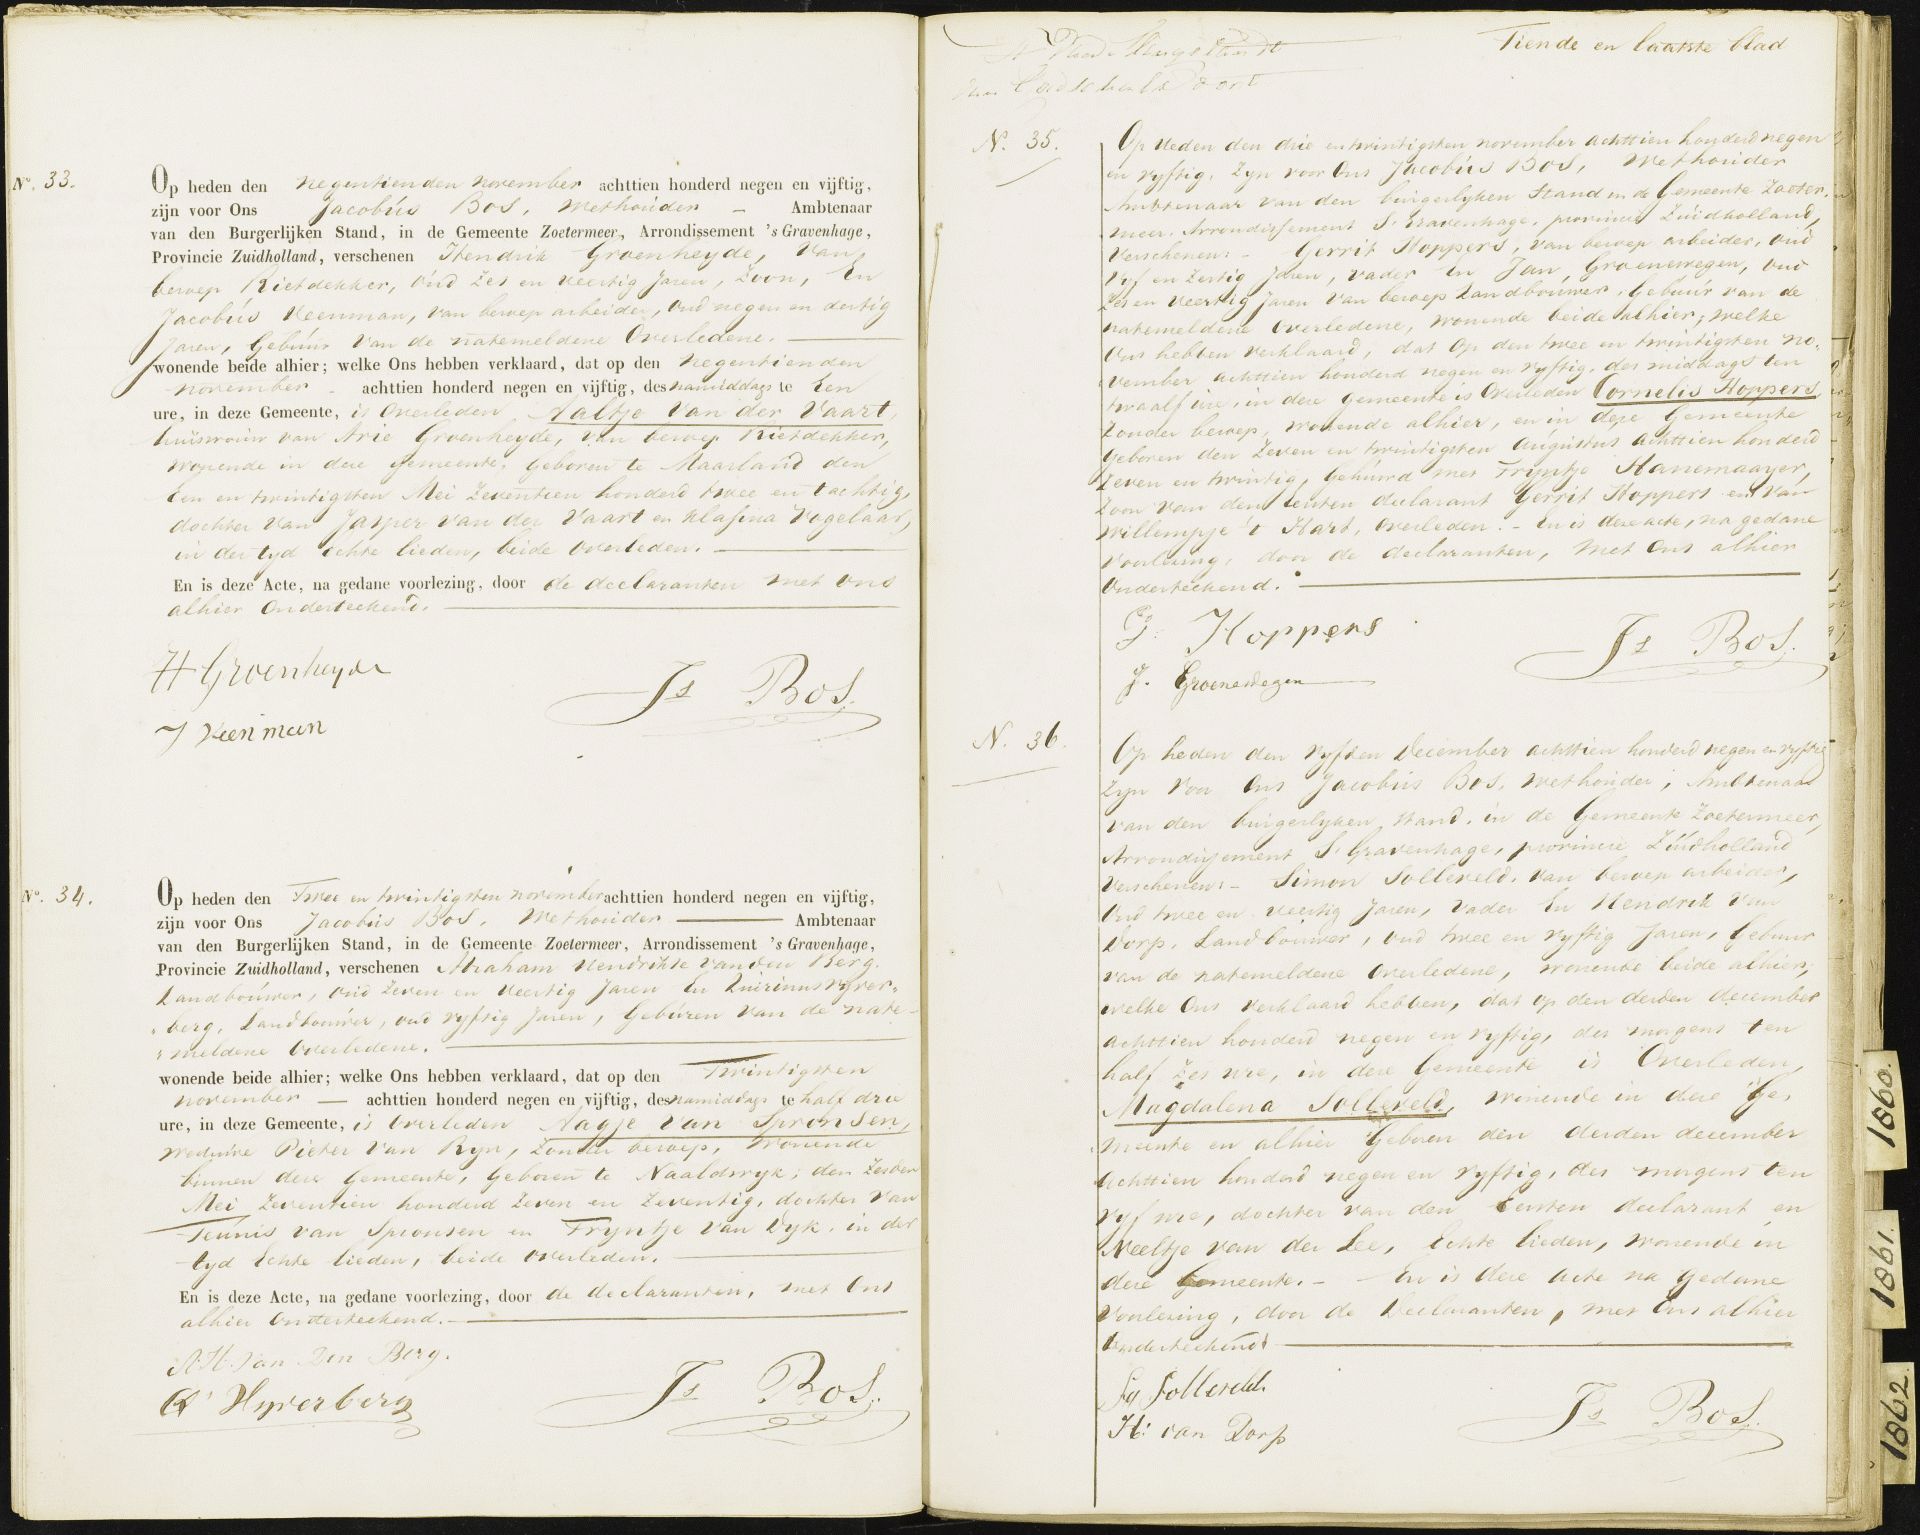 Nº. 33.
Op heden den negentienden november achttien honderd negen en vijftig,
zijn voor Ons Jacobús Bos, Wethoúder – Ambtenaar
van den Burgerlijken Stand, in de Gemeente Zoetermeer, Arrondissement 's Gravenhage,
Provincie Zuidholland, verschenen Hendrik Groenheyde, Van
beroep Rietdekker, oúd Zes en Veertig Jaren, Zoon, En
Jacobús Veenman, van beroep arbeider, oud negen en dertig
Jaren, Gebúúr van de natemeldene Overledene.
wonende beide alhier; welke Ons hebben verklaard, dat op den negentienden
november – achttien honderd negen en vijftig, des namiddags te Een
ure, in deze Gemeente, is Overleden Aaltje Van der Vaart,
húisvrouw van Arie Groenheyde, van beroep Rietdekker,
wonende in deze gemeente, Geboren te Maasland den
Een en twintigsten Mei Zeventien honderd twee en tachtig,
dochter van Jasper van der Vaart en Klasina Vogelaar,
in der tyd echte lieden, beide overleden.
En is deze Acte, na gedane voorlezing, door de declaranten met ons
alhier onderteekend.
H Groenheyde
J Veenman
Js Bos.
Nº. 34.
Op heden den Twee en twintigsten november achttien honderd negen en vijftig,
zijn voor Ons Jacobús Bos, Wethoúder Ambtenaar
van den Burgerlijken Stand, in de Gemeente Zoetermeer, Arrondissement 's Gravenhage,
Provincie Zuidholland, verschenen Abraham Hendrikse van den Berg.
Landboúwer, oúd Zeven en Veertig Jaren En Quirinus Vyver„
„berg, Landboúwer, oud vyftig Jaren, Gebúren van de nate-
„meldene Overledene.
wonende beide alhier; welke Ons hebben verklaard, dat op den Twintigsten
november — achttien honderd negen en vijftig, des namiddags te half drie
ure, in deze Gemeente, is Overleden Aagje Van Spronsen,
weduwe Pieter Van Ryn, Zonder beroep, Wonende
binnen deze Gemeente, Geboren te Naaldwyk, den Zesden
Mei Zeventien honderd Zeven en Zeventig, dochter Van
Teúnis van Spronsen en Tryntje Van Dyk, in der
tyd Echte lieden, beide overleden.
En is deze Acte, na gedane voorlezing, door de declaranten, met Ons
alhier Onderteekend.
A. H. van Den Berg.
Js Bos.
Tiende en laatste blad
N. 35.
Op Heden den drie en twintigsten november achttien honderd negen
en vyftig, Zyn voor Ons Jacobús Bos, Wethoúder
Ambtenaar van den búrgerlyken Stand in de Gemeente Zoeter„
meer, Arrondissement S. Gravenhage, provincie Zúidholland,
Verschenen: – Gerrit Hoppers, van beroep arbeider, oúd
Vyf en Zestig Jaren, vader En Jan Groenewegen, oud
Zes en Veertig Jaren van beroep Landboúwer, Gebúúr van de
natemeldene Overledene, wonende beide alhier; welke
Ons hebben verklaard, dat op den twee en twintigsten no„
vember achttien honderd negen en vyftig, des middags ten
twaalf úre, in deze gemeente is Overleden Cornelis Hoppers,
Zonder beroep, wonende alhier, en in deze Gemeente
Geboren den Zeven en twintigsten Augústus achttien honderd
Zeven en twintig, Gehúwd met Tryntje Hanemaayer,
Zoon van den eersten declarant Gerrit Hoppers en van
Willempje 't Hart, overleden. – En is deze acte, na gedane
voorlezing, door de declaranten, met Ons alhier
Onderteekend.
G. Hoppers
J. Groenewegen
Js Bos.
N. 36.
Op heden den vyfden December achttien honderd negen en vyftig
Zyn voor Ons Jacobús Bos, Wethoúder, Ambtenaar
van den búrgerlyken stand, in de Gemeente Zoetermeer,
Arrondissement S. Gravenhage, provincie Zúidholland
Verschenen: – Simon Solleveld, van beroep arbeider,
Oud twee en veertig Jaren, vader En Hendrik Van
Dorp, Landboúwer, oud twee en vyftig Jaren, Gebuur
van de natemeldene overledene, wonende beide alhier;
welke Ons verklaard hebben, dat op den derden december
achttien honderd negen en vyftig, des morgens ten
half Zes ure, in deze Gemeente is Overleden
Magdalena Solleveld, wonende in deze Ge„
meente en alhier Geboren den derden december
achttien honderd negen en vyftig, des morgens ten
vyf ure, dochter van den Eersten declarant en
Neeltje van der Lee, Echte lieden, wonende in
deze Gemeente. – En is deze acte na gedane
voorlezing, door de Declaranten, met Ons alhier
Onderteekend
Solleveld.
H: van Dorp
Js Bos.
1860.
1861.
1862.